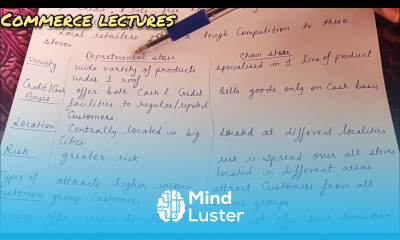 Commerce lectures
Local retailers a tough Competition to these
stores
Departmental store Chain store
Variety wide variety of products specialised in 1 line of product
under 1 roof
Credit/Cash offer both Cash & Credit Sells goods only on Cash basis.
Basis facilities to regular/reputed
Customers.
Location Centrally located in big Located at different localities
Cities.
Risk greater risk risk is spread over all stores
located in different areas.
Types of attracts higher income attract Customers from all
Customers group Customers groups
offer various services not offer such services
Mind
Luster